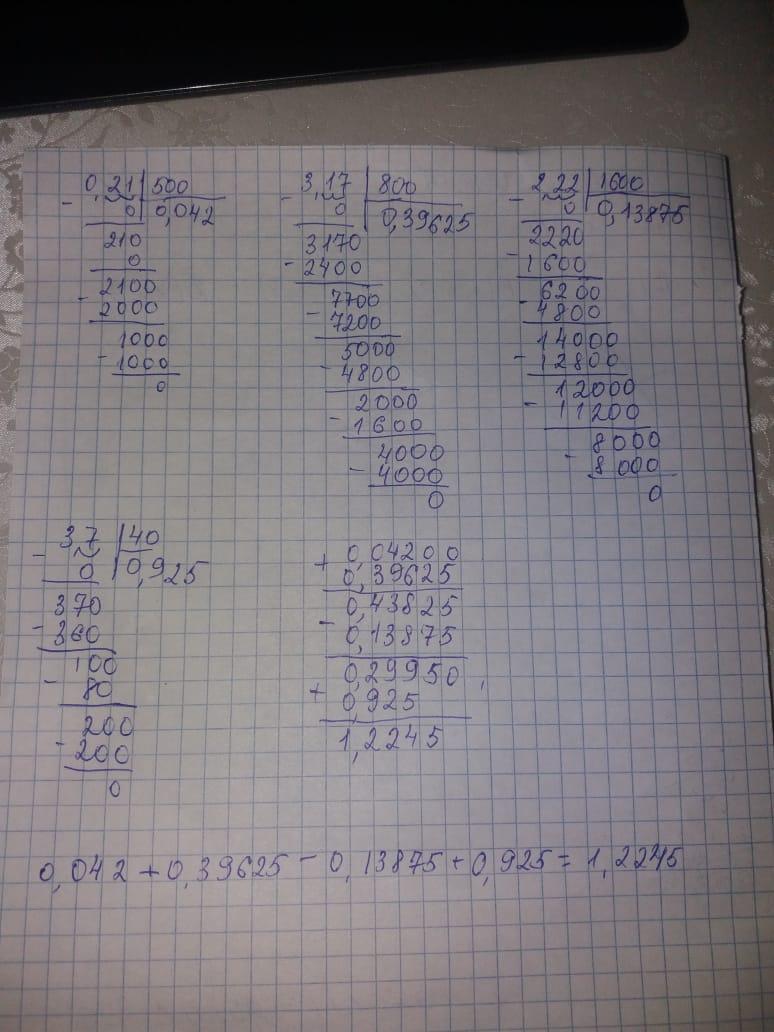 0,21 | 500
- 0 | 0,042
210
0
2100
- 2000
1000
- 1000
0
3,17 | 800
- 0 | 0,39625
3170
- 2400
7700
- 7200
5000
- 4800
2000
- 1600
4000
- 4000
0
2,22 | 1600
- 0 | 0,13875
2220
- 1600
6200
- 4800
14000
- 12800
12000
- 11200
8000
- 8000
0
3,7 | 40
- 0 | 0,925
370
- 360
100
- 80
200
- 200
0
0,04200
+ 0,39625
0,43825
- 0,13875
0,29950
+ 0,925
1,2245
0,042 + 0,39625 - 0,13875 + 0,925 = 1,2245